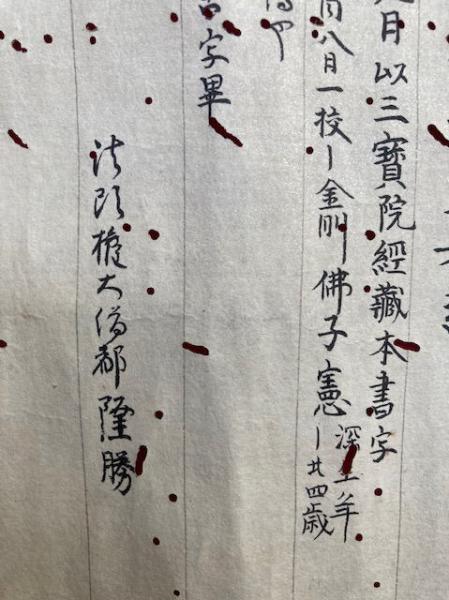 日以三寶院經藏本書字
月八日一挍丨金剛佛子憲丨
深生年
廿四歳
字畢
法印権大僧都隆勝